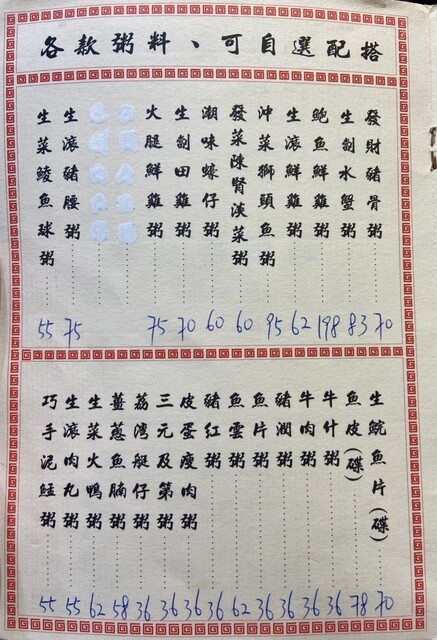 各款粥料、可自選配搭
發財豬骨粥 70
生劏水蟹粥 83
鮑魚鮮雞粥 198
生滾鮮雞粥 62
沖菜獅頭魚粥 95
發菜陳腎淡菜粥 60
潮味蠔仔粥 60
生劏田雞粥 70
火腿鮮雞粥 75
生滾豬腰粥 75
生菜鯪魚球粥 55
生鯇魚片(碟) 70
魚皮(碟) 78
牛什粥 36
牛肉粥 36
豬潤粥 36
魚片粥 36
魚雲粥 62
豬紅粥 36
皮蛋瘦肉粥 36
三元及第粥 36
荔灣艇仔粥 36
薑蔥魚腩粥 58
生菜火鴨粥 62
生滾肉丸粥 55
巧手泥鯭粥 55